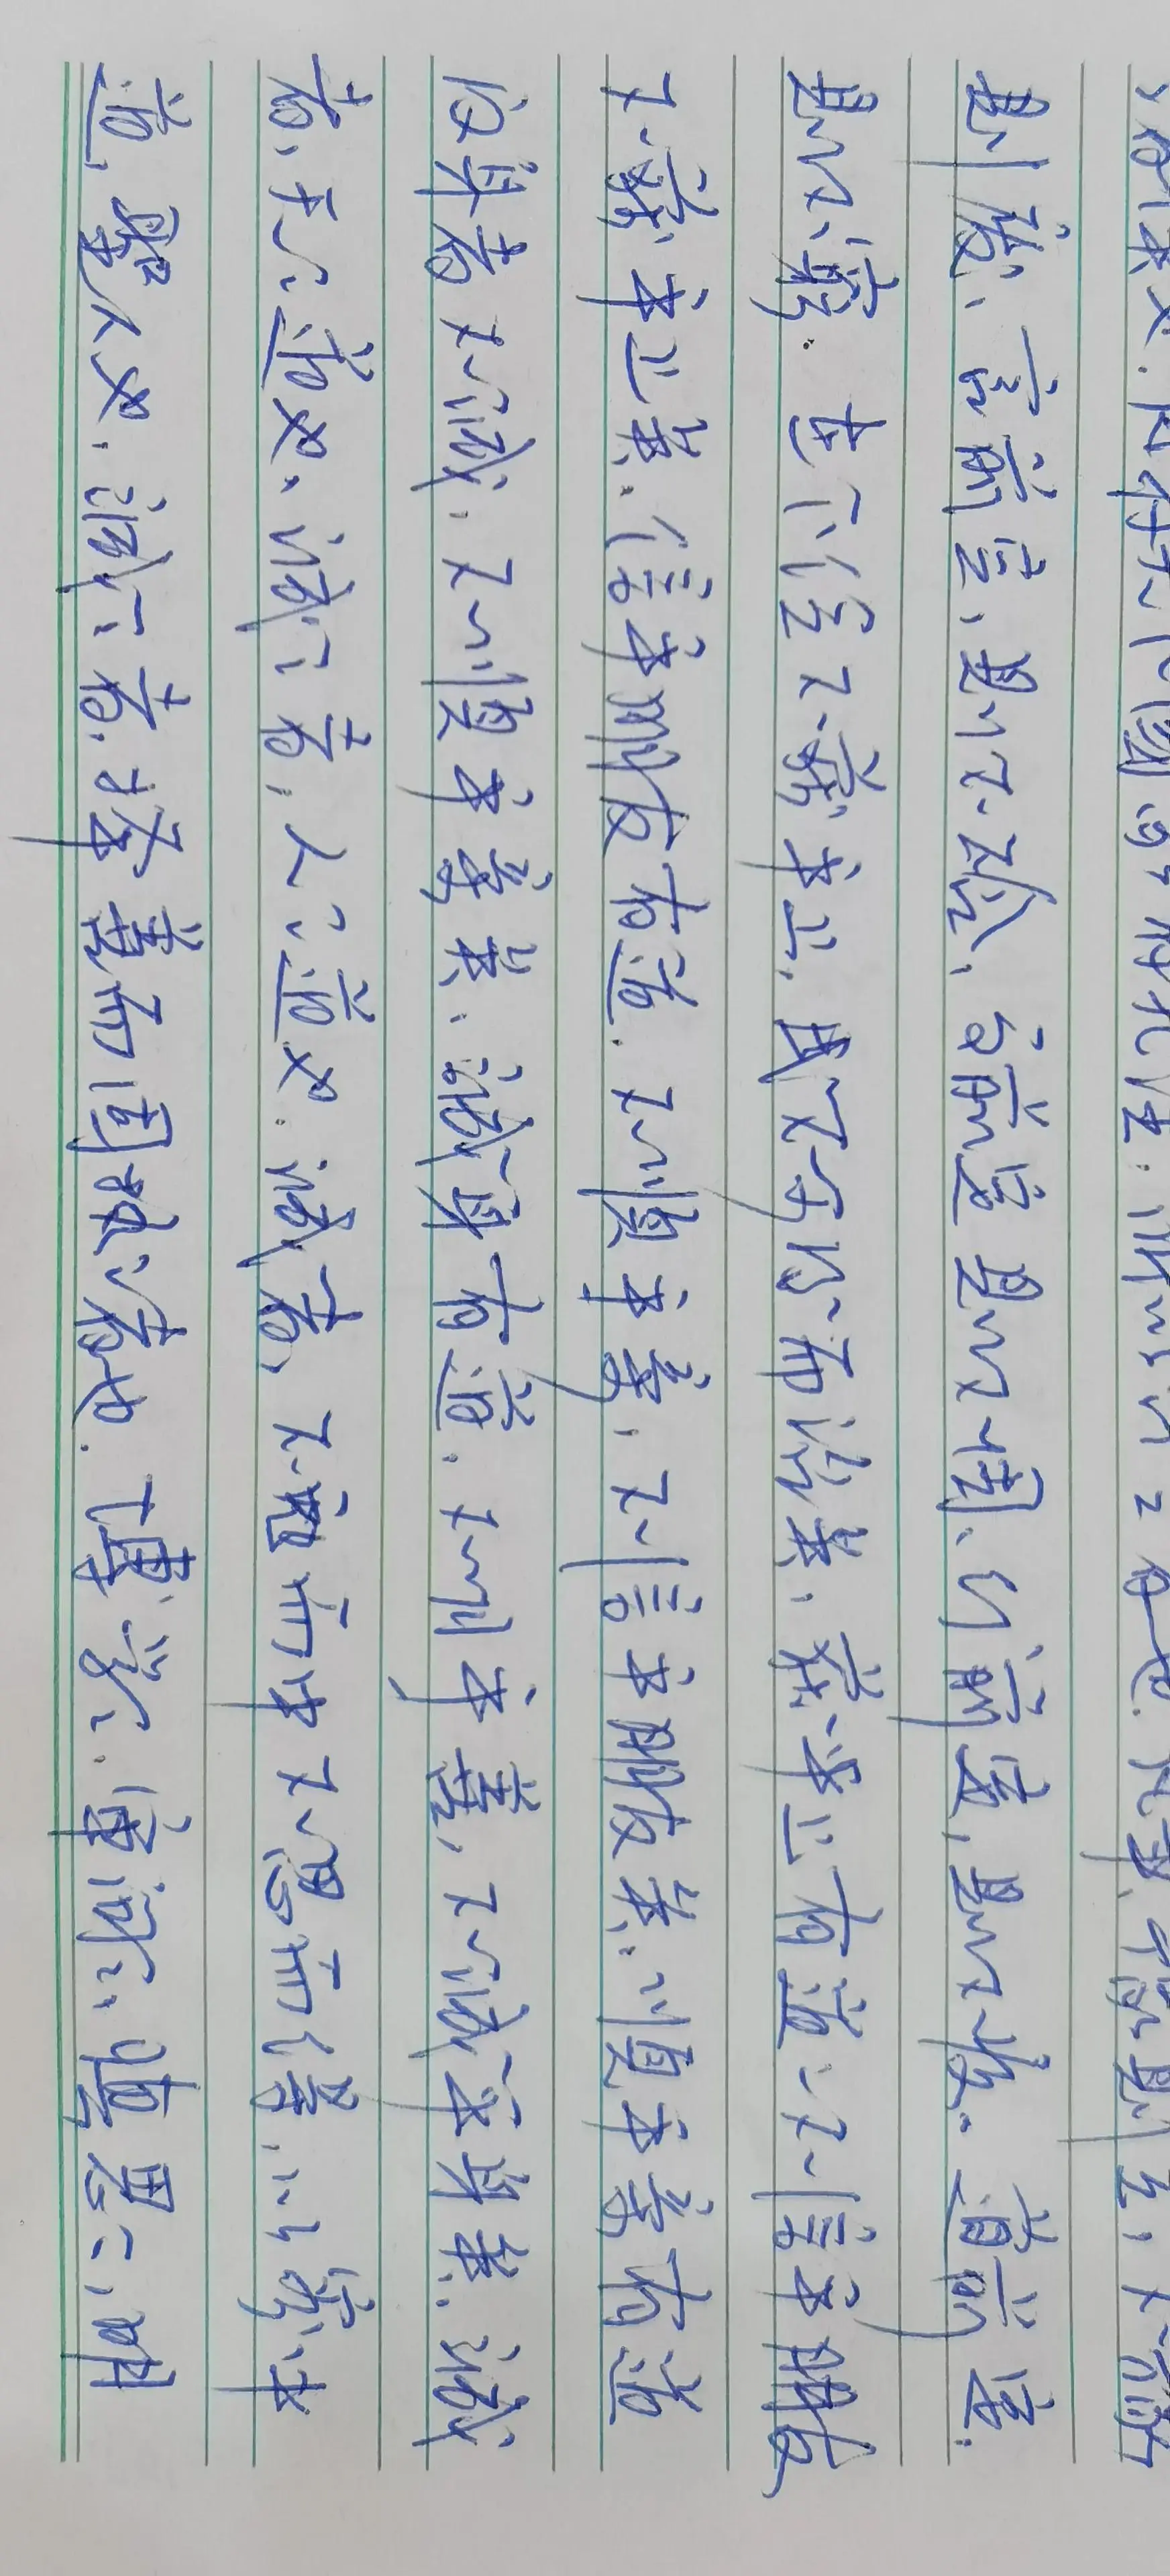 国家有九经:所以行之者一也.凡事,豫则立,不豫
则废,言前定,则不跲,事前定则不困,行前定,则不疚。道前定.
则不穷.在下位不获乎上.民不可得而治矣,获乎上有道:不信乎朋友
不获乎上矣.信乎朋友有道.不顺乎亲,不信乎朋友矣.顺乎亲有道
反身者不诚,不顺乎亲矣.诚身有道.不明乎善,不诚乎身矣.诚
者,天之道也,诚之者,人之道也.诚者,不勉而中不思而得,从容中
道,圣人也,诚之者,择善而固执之者也.博学之,审问之,慎思之,明